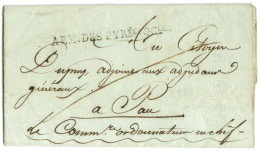 ARM. DES PYRÉN. OCCID.
Au Citoyen
Dupuy adjoint aux adjudans
généraux
a Pau
Le Commre. ordonnateur en chef